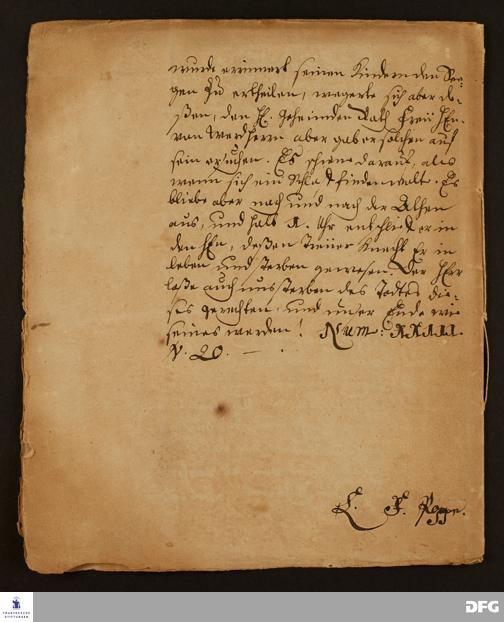 wurde erinnert seinen Kindern den See-
gen zu ertheilen, wegerte sich aber de-
ßen, den H. Geheimden Rath Frey Hn.
von Werthern aber gab er solchen auf
sein ersuchen. Es schiene darauf, als
wenn sich ein Schlaf finden wolte. Es
bliebe aber nach und nach der Athem
aus, und halb 1. Uhr entschlief er in
den Hn, deßen treuer Knecht Er im
leben und sterben gewesen. Der Herr
laße auch uns sterben des Todes die-
ses Gerechten, und unser Ende wie
seines werden! Num: XXIII.
v. 20.
L. F. Poppe.
FRANCKESCHE
STIFTUNGEN
DFG